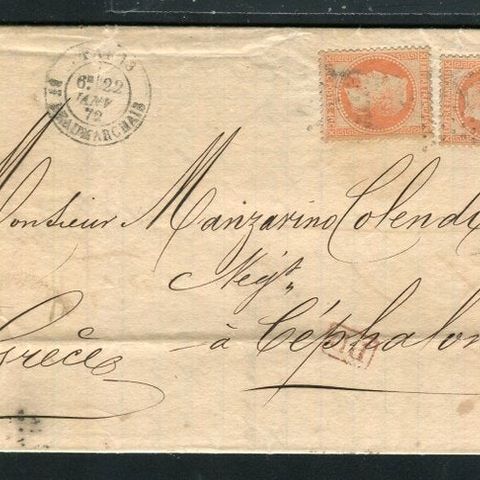 PARIS
6E 22
JANV
72
BD BEAUMARCHAIS
Monsieur Manzarino Colend
Negt
à Céphalon
Grèce
PD